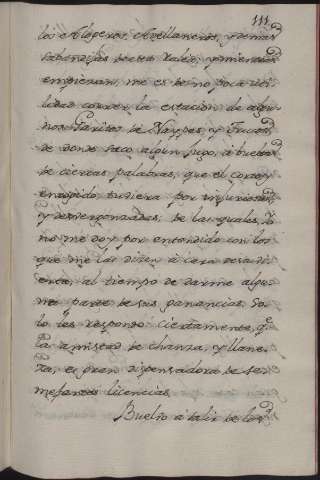 111
los Aloperos, Avellaneros, y demas
sabandijas de esta ralea, y mientras
empiezan, me es de no poca uti-
lidad correr la estacion de algu-
nos Garitos de Naypes, y Trucos,
de donde saco algun jugo, à bueltas
de ciertas palabras, que el corto, y
encogido tuviera por injuriosas,
y desvergonzadas; de las quales Yo
no me doy por entendido con los
que me las dicen à cara descu-
bierta, al tiempo de darme algu-
na parte de sus ganancias. So-
lo les respondo ciertamente, qe.
la amistad de chanza, y llane-
za, es gran dispensadora de se-
mejantes licencias.
Buelvo à salir de los